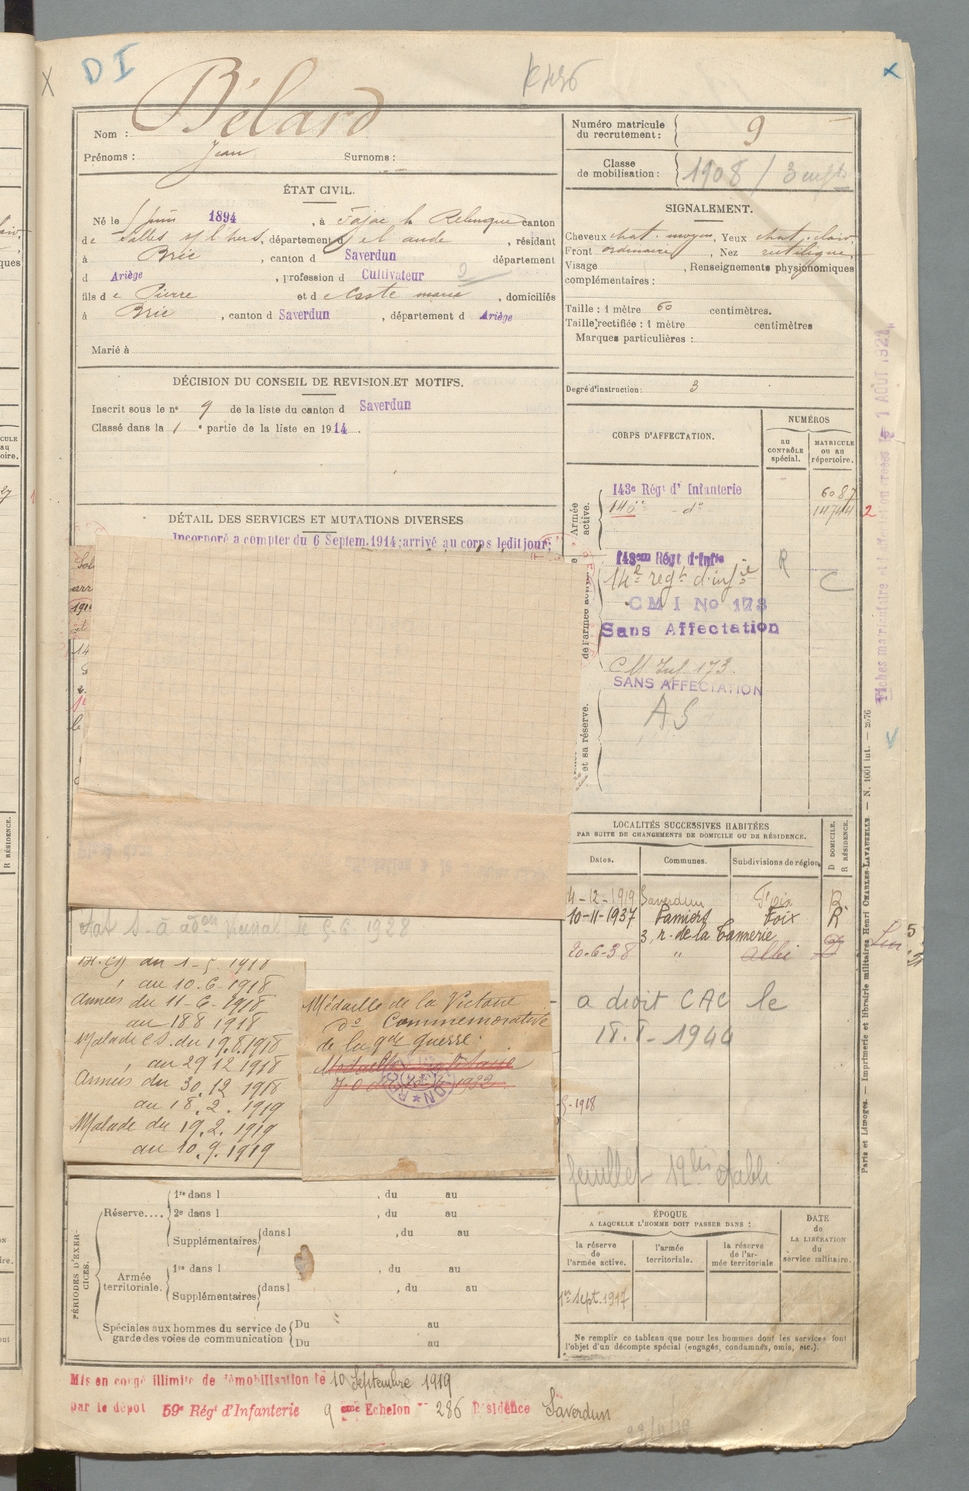 DI
Nom : Bélard
Prénoms : Jean Surnoms :
Numéro matricule du recrutement : 9
Classe de mobilisation : 1908 /
ÉTAT CIVIL.
Né le juin 1894, à Fajac la Relenque canton
de Salles s/ l'hers, département de l'aude, résidant
à Brie, canton d Saverdun département
d Ariège, profession d Cultivateur
fils de Pierre et de Coste maria, domiciliés
à Brie, canton d Saverdun, département d Ariège
Marié à
SIGNALEMENT.
Cheveux chat. moyen, Yeux chat. clair
Front ordinaire, Nez rectiligne,
Visage , Renseignements physionomiques
complémentaires :
Taille : 1 mètre 60 centimètres.
Taille rectifiée : 1 mètre centimètres
Marques particulières :
Degré d'instruction : 3
DÉCISION DU CONSEIL DE REVISION ET MOTIFS.
Inscrit sous le nº 9 de la liste du canton d Saverdun
Classé dans la 1 e partie de la liste en 1914.
DÉTAIL DES SERVICES ET MUTATIONS DIVERSES
Incorporé a compter du 6 Septem. 1914; arrivé au corps ledit jour;
CORPS D'AFFECTATION.
NUMÉROS
au CONTRÔLE spécial.
MATRICULE OU AU répertoire.
Armée active.
143e Régt d'Infanterie 6087
146e dº 2
143em Régt d'Infie
14e regt d'infie R C
CMI No 173
Sans Affectation
C M Inf 173.
SANS AFFECTATION
AS
et sa réserve.
LOCALITÉS SUCCESSIVES HABITÉES
PAR SUITE DE CHANGEMENTS DE DOMICILE OU DE RÉSIDENCE.
Dates. Communes. Subdivisions de région. D DOMICILE. R RÉSIDENCE.
4-12-1919 Saverdun Foix R
10-11-1937 Pamiers Foix R
3, r. de la Tannerie
20-6-38 " Albi
a droit CAC le
18.I-1944
feuillet 12bis établi
1918
au 10-6-1918
Armées du 11-6-1918
au 18 8 1918
Malade C.S. du 19.8.1918
au 29 12 1918
Armées du 30.12 1918
au 18.2.1919
Malade du 19.2.1919
au 10.9.1919
Médaille de la Victoire
dº Commémorative
de la gde guerre.
PÉRIODES D'EXERCICES.
Réserve....
1re dans l , du au
2e dans l , du au
Supplémentaires dans l , du au
Armée territoriale.
1re dans l , du au
Supplémentaires dans l , du au
Spéciales aux hommes du service de garde des voies de communication
Du au
Du au
ÉPOQUE
A LAQUELLE L'HOMME DOIT PASSER DANS :
DATE DE LA LIBÉRATION du service militaire.
la réserve de l'armée active.
l'armée territoriale.
la réserve de l'armée territoriale
1er Sept. 1917
Ne remplir ce tableau que pour les hommes dont les services font
l'objet d'un décompte spécial (engagés, condamnés, omis, etc.).
Mis en congé illimité de démobilisation le 10 Septembre 1919
par le dépôt 59e Régt d'Infanterie 9 eme Echelon nº 286 Résidence Saverdun
Paris et Limoges. — Imprimerie et librairie militaires Henri CHARLES-LAVAUZELLE. — N. 1001 int. — 2676